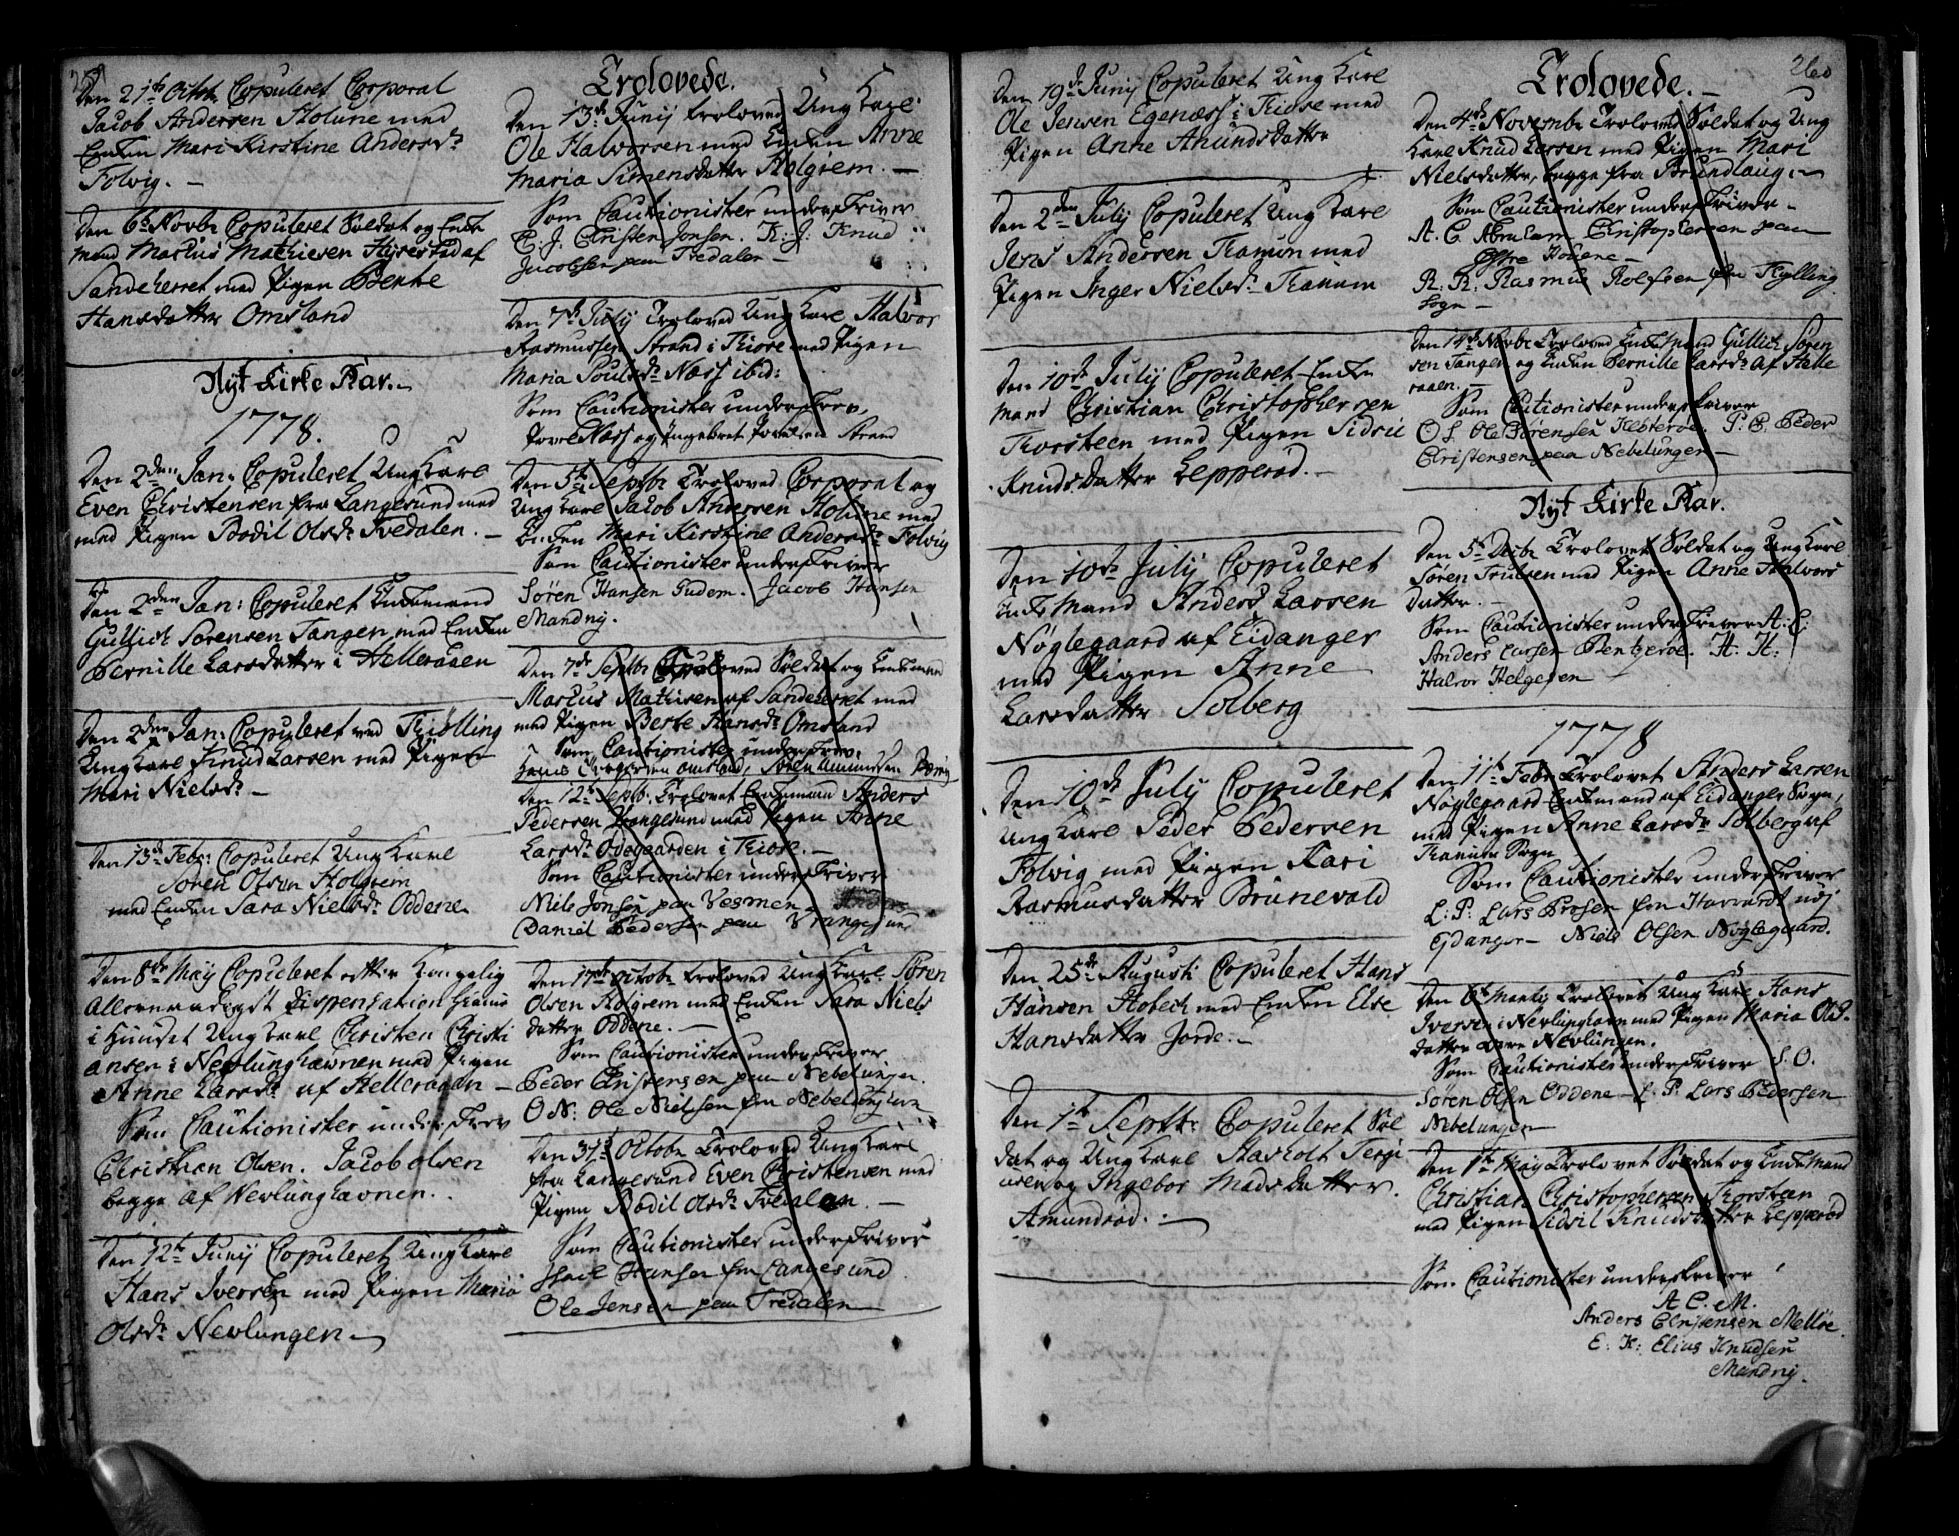 259
Den 21de Octbr. Copuleret Corporal
Jacob Andersen Holune med
Enken Mari Kirstine Andersdr.
Folvig. —
Den 6te Novbr Copuleret Soldat og Enke
mand Marcus Mathiesen Hyrestad af
Sandeherret med Pigen Benke
Hansdatter Omsland
Nyt Kirke Aar. —
1778.
Den 2den Jan: Copuleret Ung Karl
Even Christensen fra Langesund med
med Pigen Bodil Olsdr. Tvedalen. —
Den 2den Jan: Copuleret Enkemand
Gullich Sørensen Tangen med Enken
Pernille Larsdatter i Helleraaen
Den 2den Jan: Copuleret ved Kiølling
Ung Karl Knud Larsen med Pigen
Mari Nielsdr. —
Den 13de Febr: Copuleret Ung Karl
Søren Olsen Holgrem
med Enken Sara Nielsdr. Oddene.
Den 8de Maij Copuleret efter Kongelig
Allernaadigst Dispensation hiemme
i Huuset Ung Karl Christen Christi
ansen i Nevlunghavnen med Pigen
Anne Larsdr. af Helleraaen —
Som Cautionister underskrev
Christian Olsen. Jacob Olsen
begge af Nevlunghavnen.
Den 12te Junij Copuleret Ung Karl
Hans Iversen med Pigen Maria
Olsdr. Nevlungen. —
Trolovede.
Den 13de Junij troloved Ung Karl
Ole Halvorsen med Enken Anne
Maria Simensdatter Holgrem. —
Som Cautionister underskriver
C: J. Christen Jonsen. K: J: Knud
Jacobsen paa Tredalen —
Den 7de Julij Troloved Ung Karl Halvor
Rasmussen Strand i Kiose med Pigen
Maria Poulsdr. Næss ibid:
Som Cautionister underskrev.
Povel Næss og Ingebret Povelsen Strand
Den 5te Septbr Troloved Corporal og
Ung Karl Jacob Andersen Holune med
Enken Mari Kirstine Andersdr. Folvig
Som Cautionister underskriver
Søren Hansen Gudem. Jacob Hansen
Mandrij.
Den 7de Septbr Troloved Soldat og Enkemand
Marcus Mathisen af Sandeherret med
med Pigen Berte Hansdr. Omsland
Som Cautionister underskrev.
Hans Omsland, Søren Amundsen
Den 12te Septb. Trolovet Enkemand Anders
Pedersen Vrangesund med Pigen Anne
Larsdr. Ødegaarden i Kiose. —
Som Cautionister underskriver
Niels Jonsen paa Vesmen. Anders
Daniel Pedersen paa Vrangesund
Den 17de Octobr troloved Ung Karl Søren
Olsen Holgrem med Enken Sara Niels
datter Oddene. —
Som Cautionister underskriver.
Peder Christensen paa Nebelungen.
O N: Ole Nielsen fra Nebelunghavn
Den 31te Octobr Troloved Ung Karl
fra Langesund Even Christensen med
Pigen Bodil Olsdr. Tvedalen. —
Som Cautionister underskriver
Hansen fra Langesund
Ole Jensen paa Tredalen
Den 19de Junij Copuleret Ung Karl
Ole Jensen Egenæss i Kiose med
Pigen Anne Amundsdatter
Den 2den Julij Copuleret Ung Karl
Jens Andersen Tranum med
Pigen Inger Nielsdr. Tranum
Den 10de Julij Copuleret Enke
mand Christian Christophersen
Torsteen med Pigen Sidsil
Knudsdatter Lepperød. —
Den 10de Julij Copuleret
Enke Mand Anders Larsen
Nøglegaard af Eidanger
med Pigen Anne
Larsdatter Solberg
Den 10de Julij Copuleret
Ung Karl Peder Pedersen
Folvig med Pigen Kari
Rasmusdatter Brunevald
Den 25de Augusti Copuleret Hans
Hansen Stobech med Enken Else
Hansdatter Jorde. —
Den 1te Septbr: Copuleret Sol
dat og Ung Karl Harholt Terji
usen og Ingebor Madsdatter.
Amundrød. —
260
Trolovede. —
Den 4de Novembr Trolovet Soldat og Ung
Karl Knud Larsen med Pigen Mari
Nielsdatter, begge fra Brundlaug. —
Som Cautionister underskriver —
A. C. Abraham Christophersen paa
Østre Hovene —
R: R: Rasmus Rolfsen fra Kylling
Sogn —
Den 14de Novbr Trolovet Enkemand Gullich Søren
sen Tangen og Enken Pernille Larsdr. af Helle
raaen. —
Som Cautionister underskriver
O S. Ole Sørensen P: C. Peder
Christensen paa Nebelungen —
Nyt Kirke Aar.
Den 5te Decbr Trolovet Soldat og Ung Karl
Søren Trulsen med Pigen Anne Halvors
datter. —
Som Cautionister underskriver A: L:
Anders Larsen Bentzerøe. H: H:
Halvor Helgesen
1778
Den 11te Febr. Trolovet Anders Larsen
Nøglegaard Enkemand af Eidanger Sogn,
med Pigen Anne Larsdr. Solberg af
Tranum Sogn
Som Cautionister underskriver
L: P: Lars Prosen fra
Eidanger — Niels Olsen Nøglegaard.
Den 6te Martij Trolovet Ung Karl Hans
Iversen i Nevlunghavn med Pigen Maria Ols-
datter Nevlungen.
Som Cautionister underskriver S. O.
Søren Olsen Oddene — L. P. Lars Pedersen
Nebelungen
Den 1te Maij Trolovet Soldat og Enke Mand
Christian Christophersen Torsteen
med Pigen Sidsil Knudsdatter Lepperød
Som Cautionister underskriver
A C. M.
Anders Christensen Melløe.
E. K: Elias Knudsen
Mandrij.